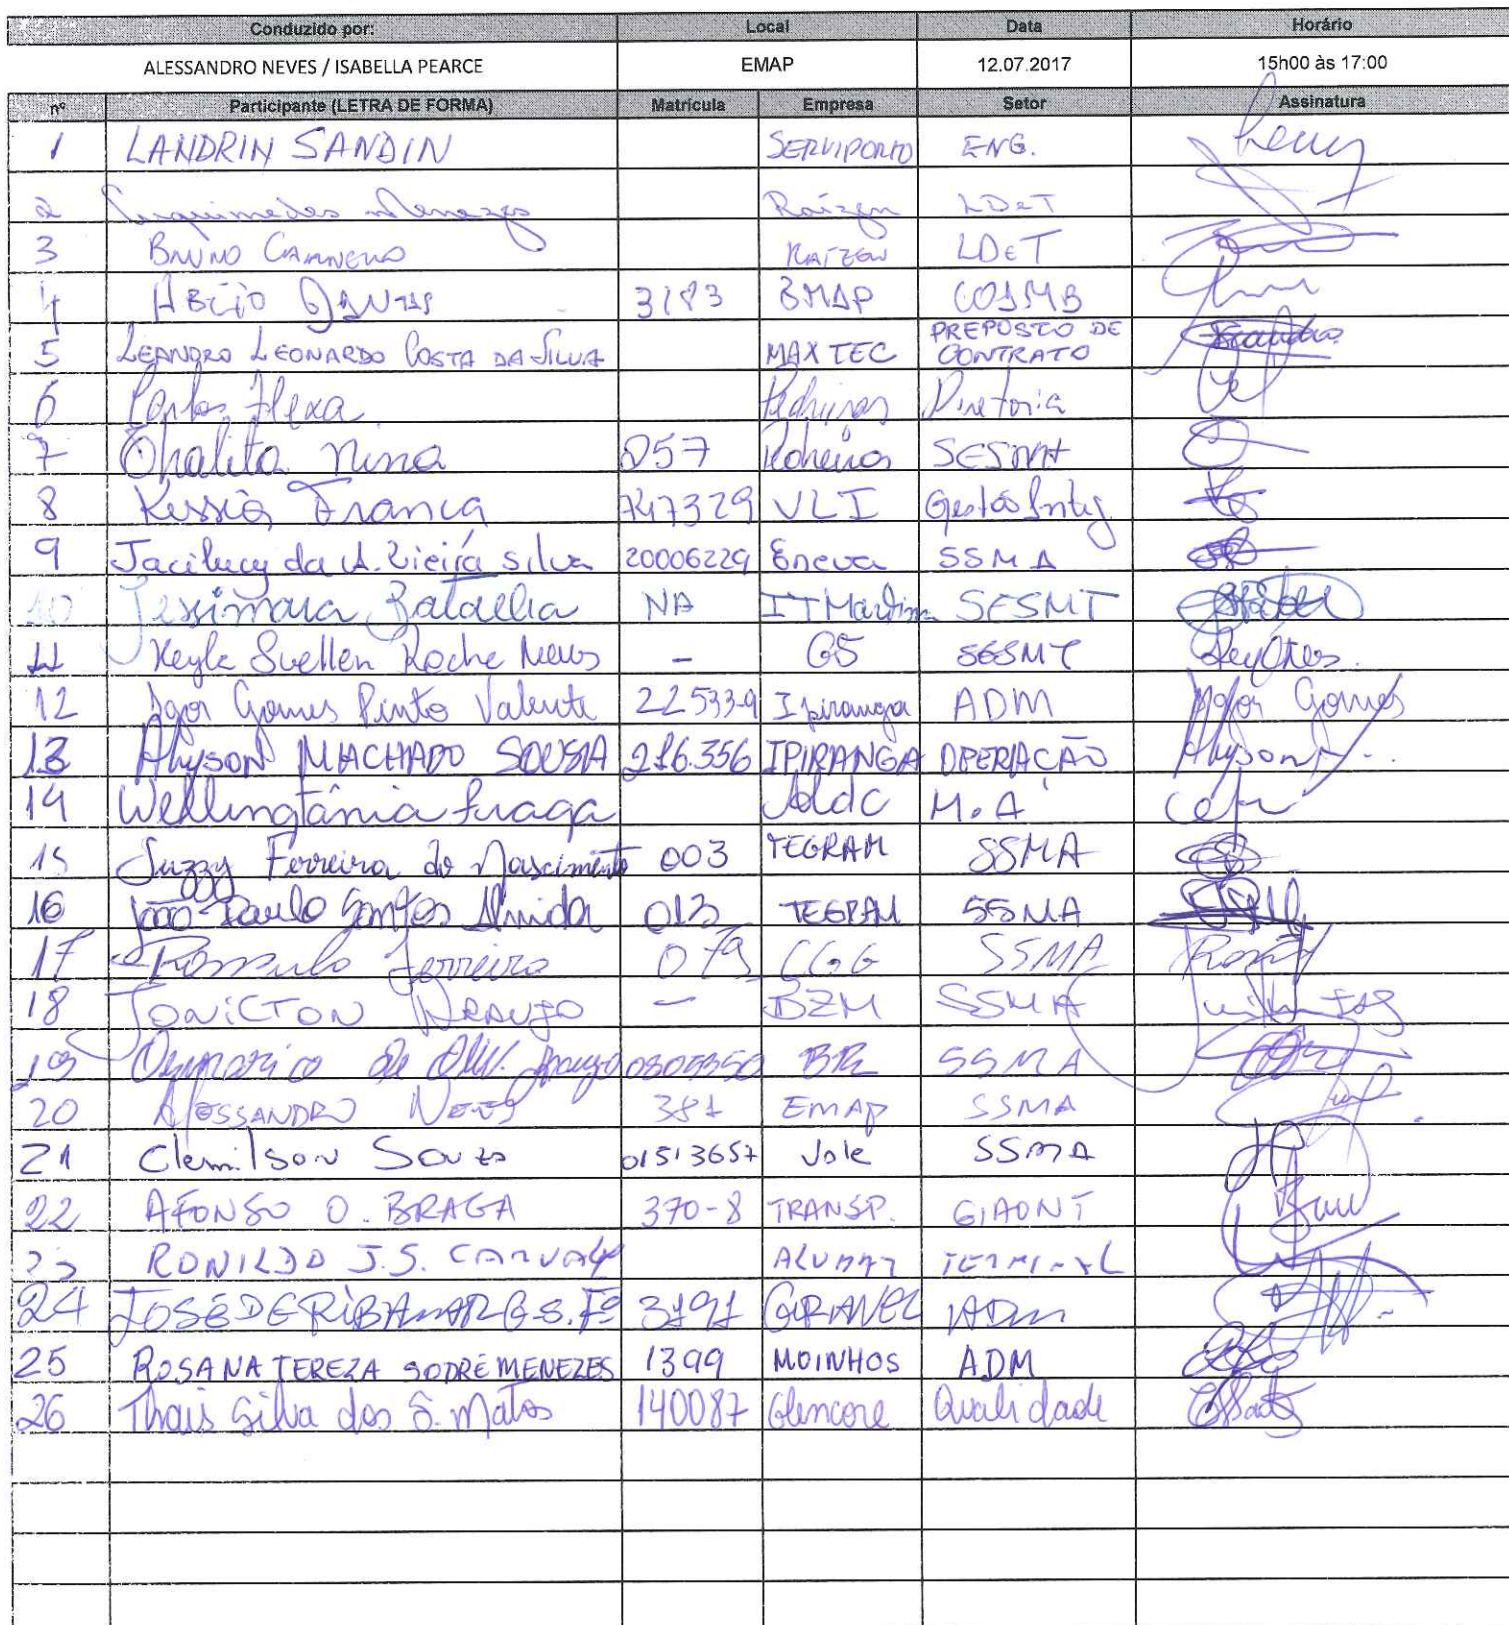 Conduzido por: Local Data Horário
ALESSANDRO NEVES / ISABELLA PEARCE EMAP 12.07.2017 15h00 às 17:00
nº Participante (LETRA DE FORMA) Matrícula Empresa Setor Assinatura
1 LANDRIN SANDIN SERVIPORTO ENG.
2 Menezes Raízen LDeT
3 BRUNO CARNEIRO RAÍZEN LDeT
4 3183 EMAP
5 LEANDRO LEONARDO COSTA DA SILVA MAXTEC PREPOSTO DE CONTRATO Leandro
6 Carlos Diretoria
7 Thalita Nina 057 SESMT
8 Kessia Franca 747329 VLI Gestão Integ
9 Jacilucy da A. Vieira Silva 20006229 Eneva SSMA
10 NA SESMT
11 Keyle Suellen Rocha G5 SESMT
12 Igor Gomes Pinto Valente 22533-9 Ipiranga ADM Igor Gomes
13 Alyson MACHADO SOUSA 216.356 IPIRANGA OPERAÇÃO Alyson
14 Wellingtânia Fraga M.A
15 Suzzy Ferreira do Nascimento 003 TEGRAM SSMA
16 João Paulo Santos Almida 013 TEGRAM SSMA
17 Romulo Ferreira 079 CGG SSMA
18 JONICTON ARAUJO — BZM SSMA
19 de Oliv. Araujo BR SSMA
20 ALESSANDRO NEVES 381 EMAP SSMA
21 Clemilson Souza 01513657 Vale SSMA
22 AFONSO O. BRAGA 370-8 TRANSP.
23 RONILDO J.S. CARVALHO ALUMAR TERMINAL
24 JOSÉ DE RIBAMAR G.S. Fº 3191 GRANEL ADM
25 ROSANA TEREZA SODRÉ MENEZES 1399 MOINHOS ADM
26 Thais Silva dos S. Matos 140087 Glencore Qualidade